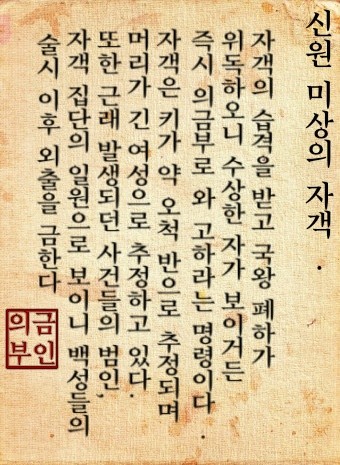 신원 미상의 자객 .
자객의 습격을 받고 국왕 폐하가
위독하오니 수상한 자가 보이거든
즉시 의금부로 와 고하라는 명령이다 .
자객은 키가 약 오척 반으로 추정되며
머리가 긴 여성으로 추정하고 있다.
또한 근래 발생되던 사건들의 범인,
자객 집단의 일원으로 보이니 백성들의
술시 이후 외출을 금한다
금인
의부